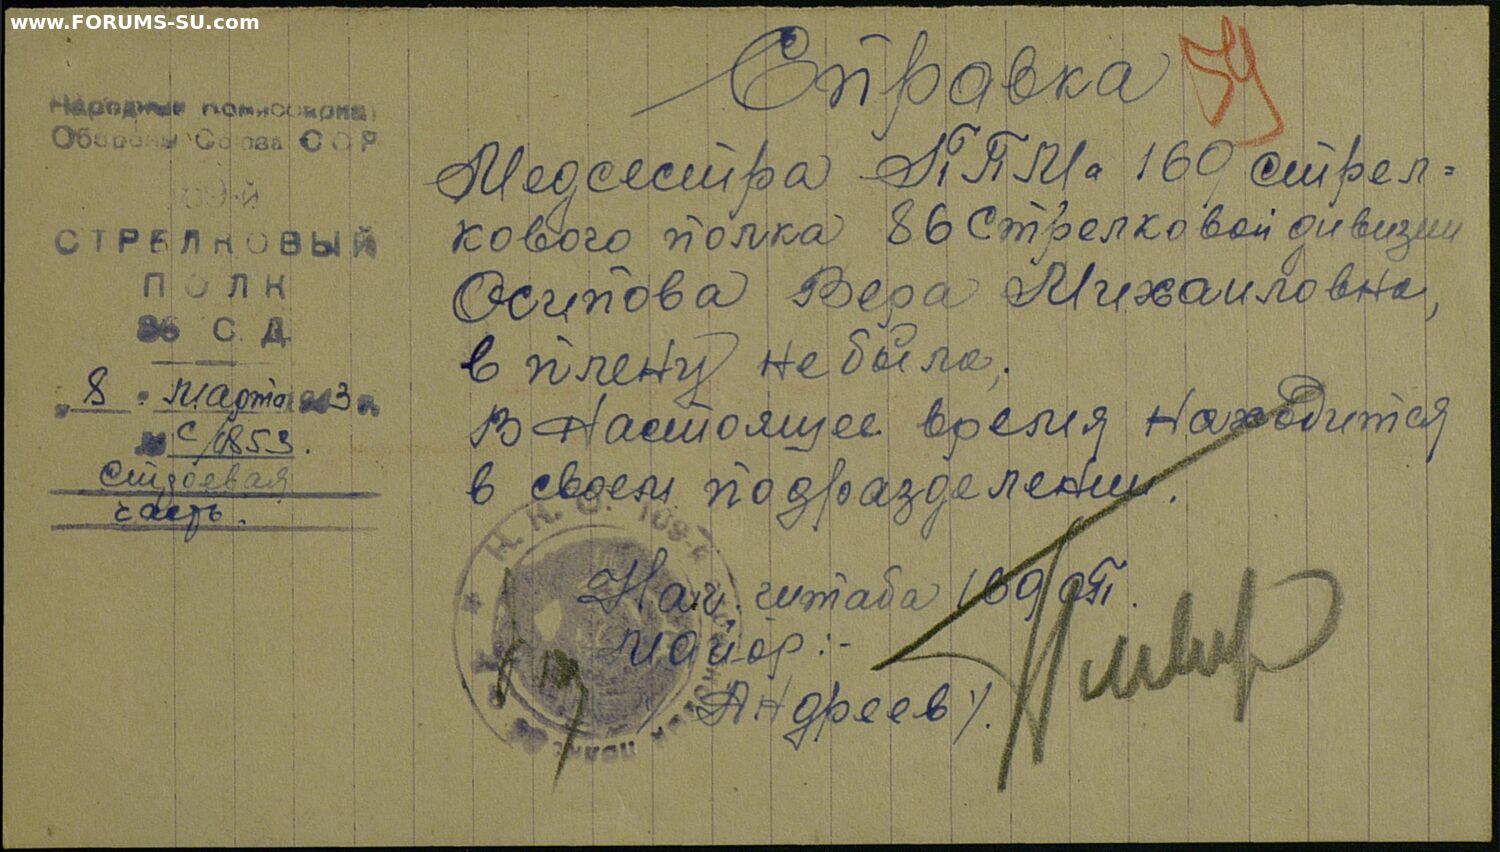 www.FORUMS-SU.com
Справка
54
Народный комиссариат
Обороны Союза ССР
СТРЕЛКОВЫЙ
ПОЛК
86 С. Д.
"8" марта 1943 г.
№ с/0853.
строевая
часть.
Медсестра ППМа 169 стрел=
кового полка 86 стрелковой дивизии
Осипова Вера Михаиловна,
в плену не была,
В настоящее время находится
в своем подразделении.
Н. К. О.
Нач. штаба 169 сп.
майор:-
/Андреев/.